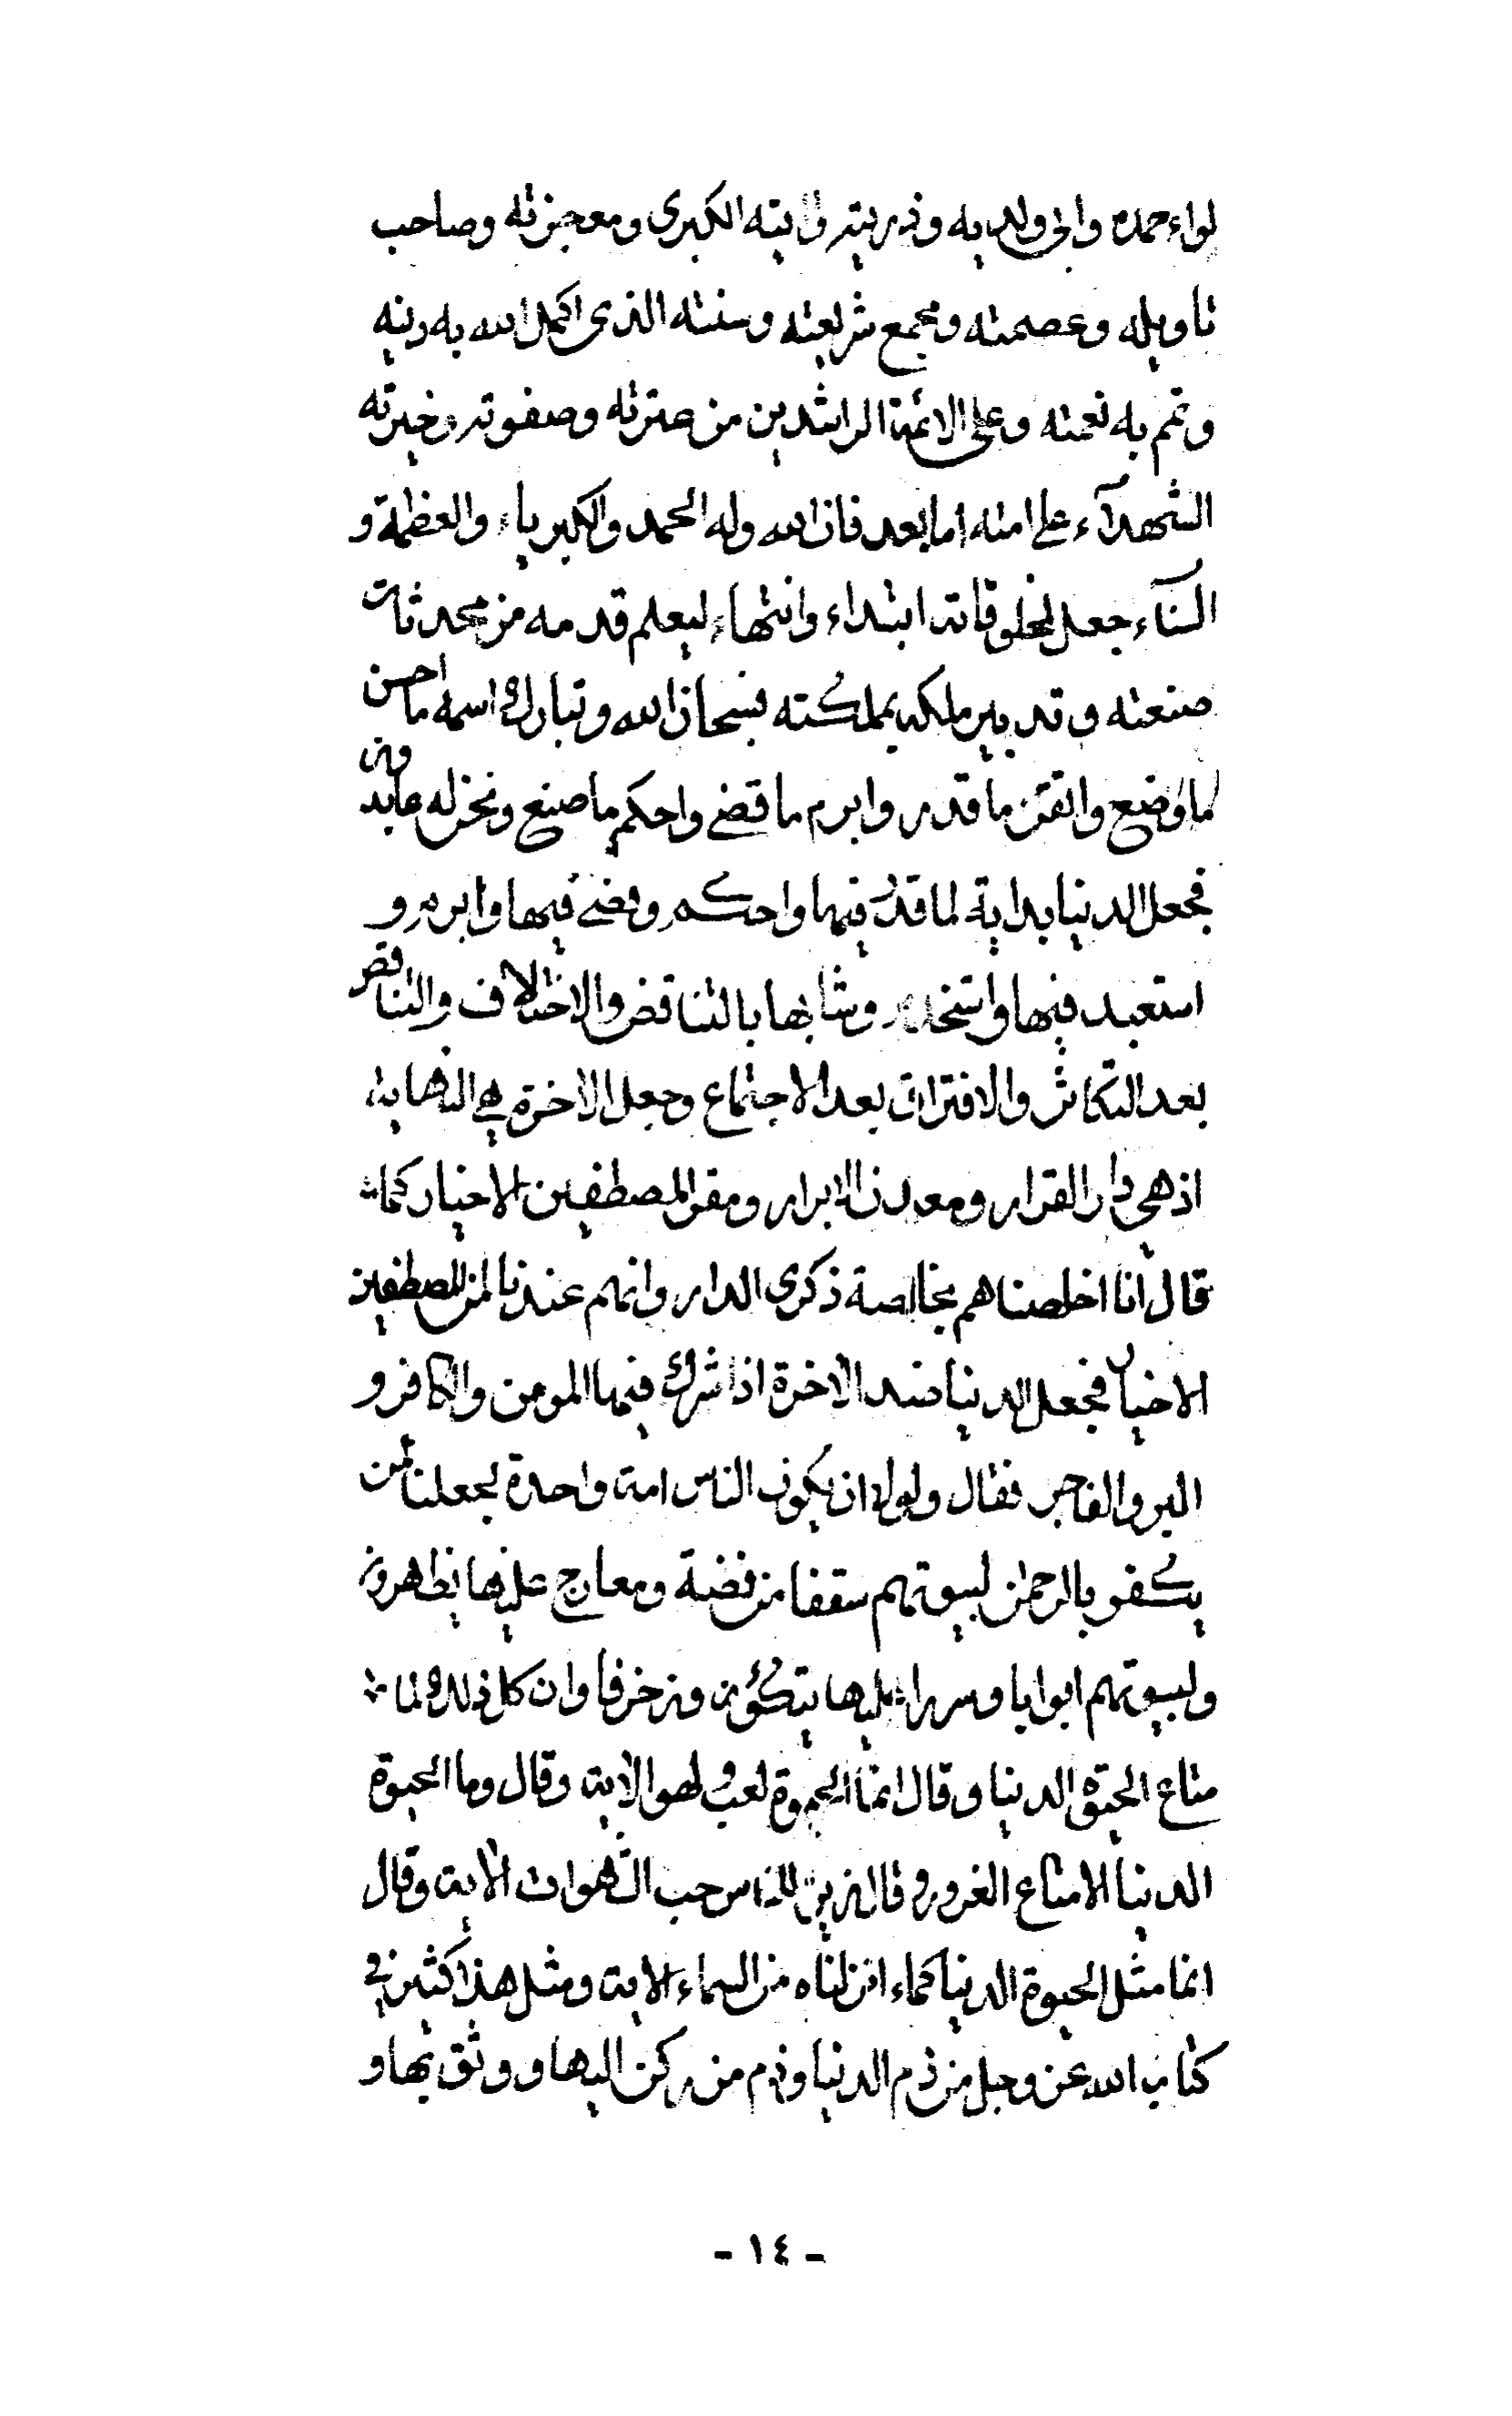 لواء حمده وابى ولديه وذريته وآيته الكبرى ومعجزته وصاحب
تاويله وعصمته ومجمع شريعته وسنته الذى اكمل الله به دينه
وتم به نعمته وعلى الائمة الراشدين من عترته وصفوته وخيرته
الشهدآء على امته اما بعد فان الله وله الحمد والكبرياء والعظمة و
السنآء جعل لمخلوقاته ابتداء وانتهاء ليعلم قدمه من محدثات
صنعته وتدبير ملكه بمملكته فسبحان الله وتبارك اسمه ما احسن
ما وضع واتقن ما قدر وابرم ما قضى واحكم ما صنع ونحن له عابدون
فجعل الدنيا بداية لما قدر فيها واحكم وقضى فيها وابرم و
استعبد فيها واستخدم وشابها بالتناقض والاختلاف والتناقص
بعد التكاثر والافتراق بعد الاجتماع وجعل الاخرة هي النهاية
اذ هي دار القرار ومعدن الابرار ومقر المصطفين الاخيار كما
قال انا اخلصناهم بخالصة ذكرى الدار وانهم عندنا لمن المصطفين
الاخيار فجعل الدنيا ضد الاخرة اذا شرك فيها المومن والكافر و
البر والفاجر فقال ولولا ان يكون الناس امة واحدة لجعلنا لمن
يكفر بالرحمن لبيوتهم سقفا من فضة ومعارج عليها يظهرون
ولبيوتهم ابوابا وسررا عليها يتكؤن وزخرفا وان كل ذلك لما
متاع الحيوة الدنيا وقال انما الحيوة لعب ولهو الاية وقال وما الحيوة
الدنيا الا متاع الغرور وقال زين للناس حب الشهوات الاية وقال
انما مثل الحيوة الدنيا كماء انزلناه من السماء الاية ومثل هذا كثير في
كتاب الله عز وجل من ذم الدنيا وذم من ركن اليها ووثق بها و
- ١٤ -